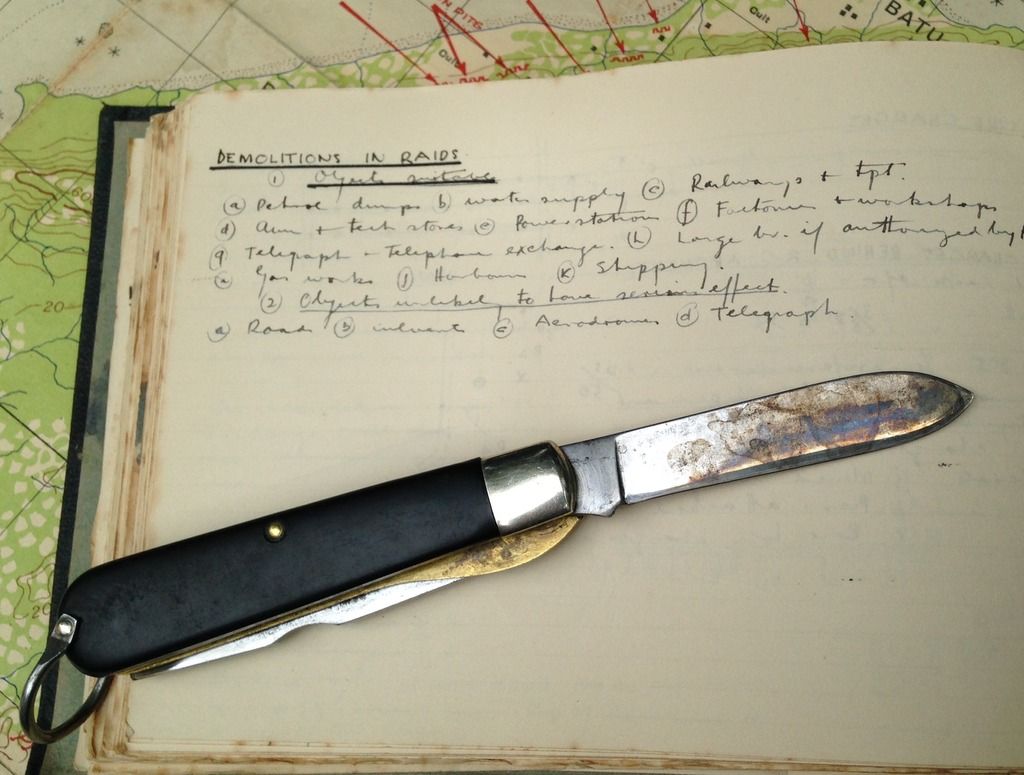 Cult
BATU
DEMOLITIONS IN RAIDS
① Objects suitable
ⓐ Petrol dumps ⓑ water supply ⓒ Railways + tpt.
ⓓ Amm + tech stores ⓔ Power stations ⓕ Factories + workshops
ⓖ Telegraph + Telephone exchange. ⓗ Large br. if authorized by
Gas works ⓙ Harbours ⓚ Shipping.
② Objects unlikely to have serious effect.
ⓐ Roads ⓑ culverts ⓒ Aerodromes ⓓ Telegraph.
20